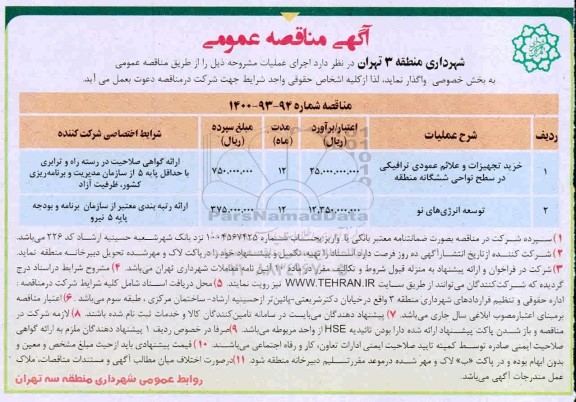 آگهی مناقصه عمومی
شهرداری منطقه ۳ تهران در نظر دارد اجرای عملیات مشروحه ذیل را از طریق مناقصه عمومی
به بخش خصوصی واگذار نماید، لذا از کلیه اشخاص حقوقی واجد شرایط جهت شرکت در مناقصه دعوت بعمل می آید.
مناقصه شماره ۹۴-۹۳-۱۴۰۰
ردیف شرح عملیات اعتبار/برآورد (ریال) مدت (ماه) مبلغ سپرده (ریال) شرایط اختصاصی شرکت کننده
۱ خرید تجهیزات و علائم عمودی ترافیکی در سطح نواحی ششگانه منطقه ۲۵.۰۰۰.۰۰۰.۰۰۰ ۱۲ ۷۵۰.۰۰۰.۰۰۰ ارائه گواهی صلاحیت در رسته راه و ترابری با حداقل پایه ۵ از سازمان مدیریت و برنامه‌ریزی کشور، ظرفیت آزاد
۲ توسعه انرژی‌های نو ۱۲.۳۵۰.۰۰۰.۰۰۰ ۱۲ ۳۷۵.۰۰۰.۰۰۰ ارائه رتبه بندی معتبر از سازمان برنامه و بودجه پایه ۵ نیرو
ParsNamadData
۱) سپرده شرکت در مناقصه بصورت ضمانتنامه معتبر بانکی یا واریز بحساب شماره ۱۰۰۴۵۶۷۴۲۵ نزد بانک شهر شعبه حسینیه ارشاد کد ۲۲۶ می‌باشد.
۲) شرکت کننده از تاریخ انتشار آگهی ده روز فرصت دارد اسناد را تهیه، تکمیل و پیشنهاد خود را در پاکت لاک و مهر شده تحویل دبیرخانه منطقه نماید.
۳) شرکت در فراخوان و ارائه پیشنهاد به منزله قبول شروط و تکالیف مقرر در آیین نامه معاملات شهرداری تهران می‌باشد. ۴) مشروح شرایط در اسناد درج
گردیده که شرکت‌کنندگان می‌توانند از طریق سایت WWW.TEHRAN.IR نیز رویت نمایند. ۵) محل دریافت اسناد شامل کلیه شرایط شرکت در مناقصه :
اداره حقوقی و تنظیم قراردادهای شهرداری منطقه ۳ واقع در خیابان دکتر شریعتی-پائین‌تر از حسینیه ارشاد - ساختمان مرکزی ، طبقه سوم می‌باشد. ۶) اعتبار مناقصه
بر مبنای اعتبار مصوب ابلاغی سال جاری می‌باشد. ۷) پیشنهاد دهندگان می‌بایست در سامانه تامین‌کنندگان کالا و خدمات ثبت نام شده باشند. ۸) لازمه شرکت در
مناقصه و باز شدن پاکت پیشنهاد ارائه شده دارا بودن تائیدیه HSE از واحد مربوطه می‌باشد. ۹) صرفا در خصوص ردیف ۱ پیشنهاد دهندگان ملزم به ارائه گواهی
صلاحیت ایمنی صادره توسط کمیته تایید صلاحیت ایمنی ادارات تعاون، کار و رفاه اجتماعی می‌باشند. ۱۰) قیمت پیشنهادی باید از حیث مبلغ مشخص و معین و
بدون ابهام بوده و در پاکت «ب» لاک و مهر شده در موعد مقرر تسلیم دبیرخانه منطقه شود. ۱۱) در صورت اختلاف میان مطالب آگهی و مستندات مناقصات، ملاک
عمل مندرجات آگهی می‌باشد.
روابط عمومی شهرداری منطقه سه تهران